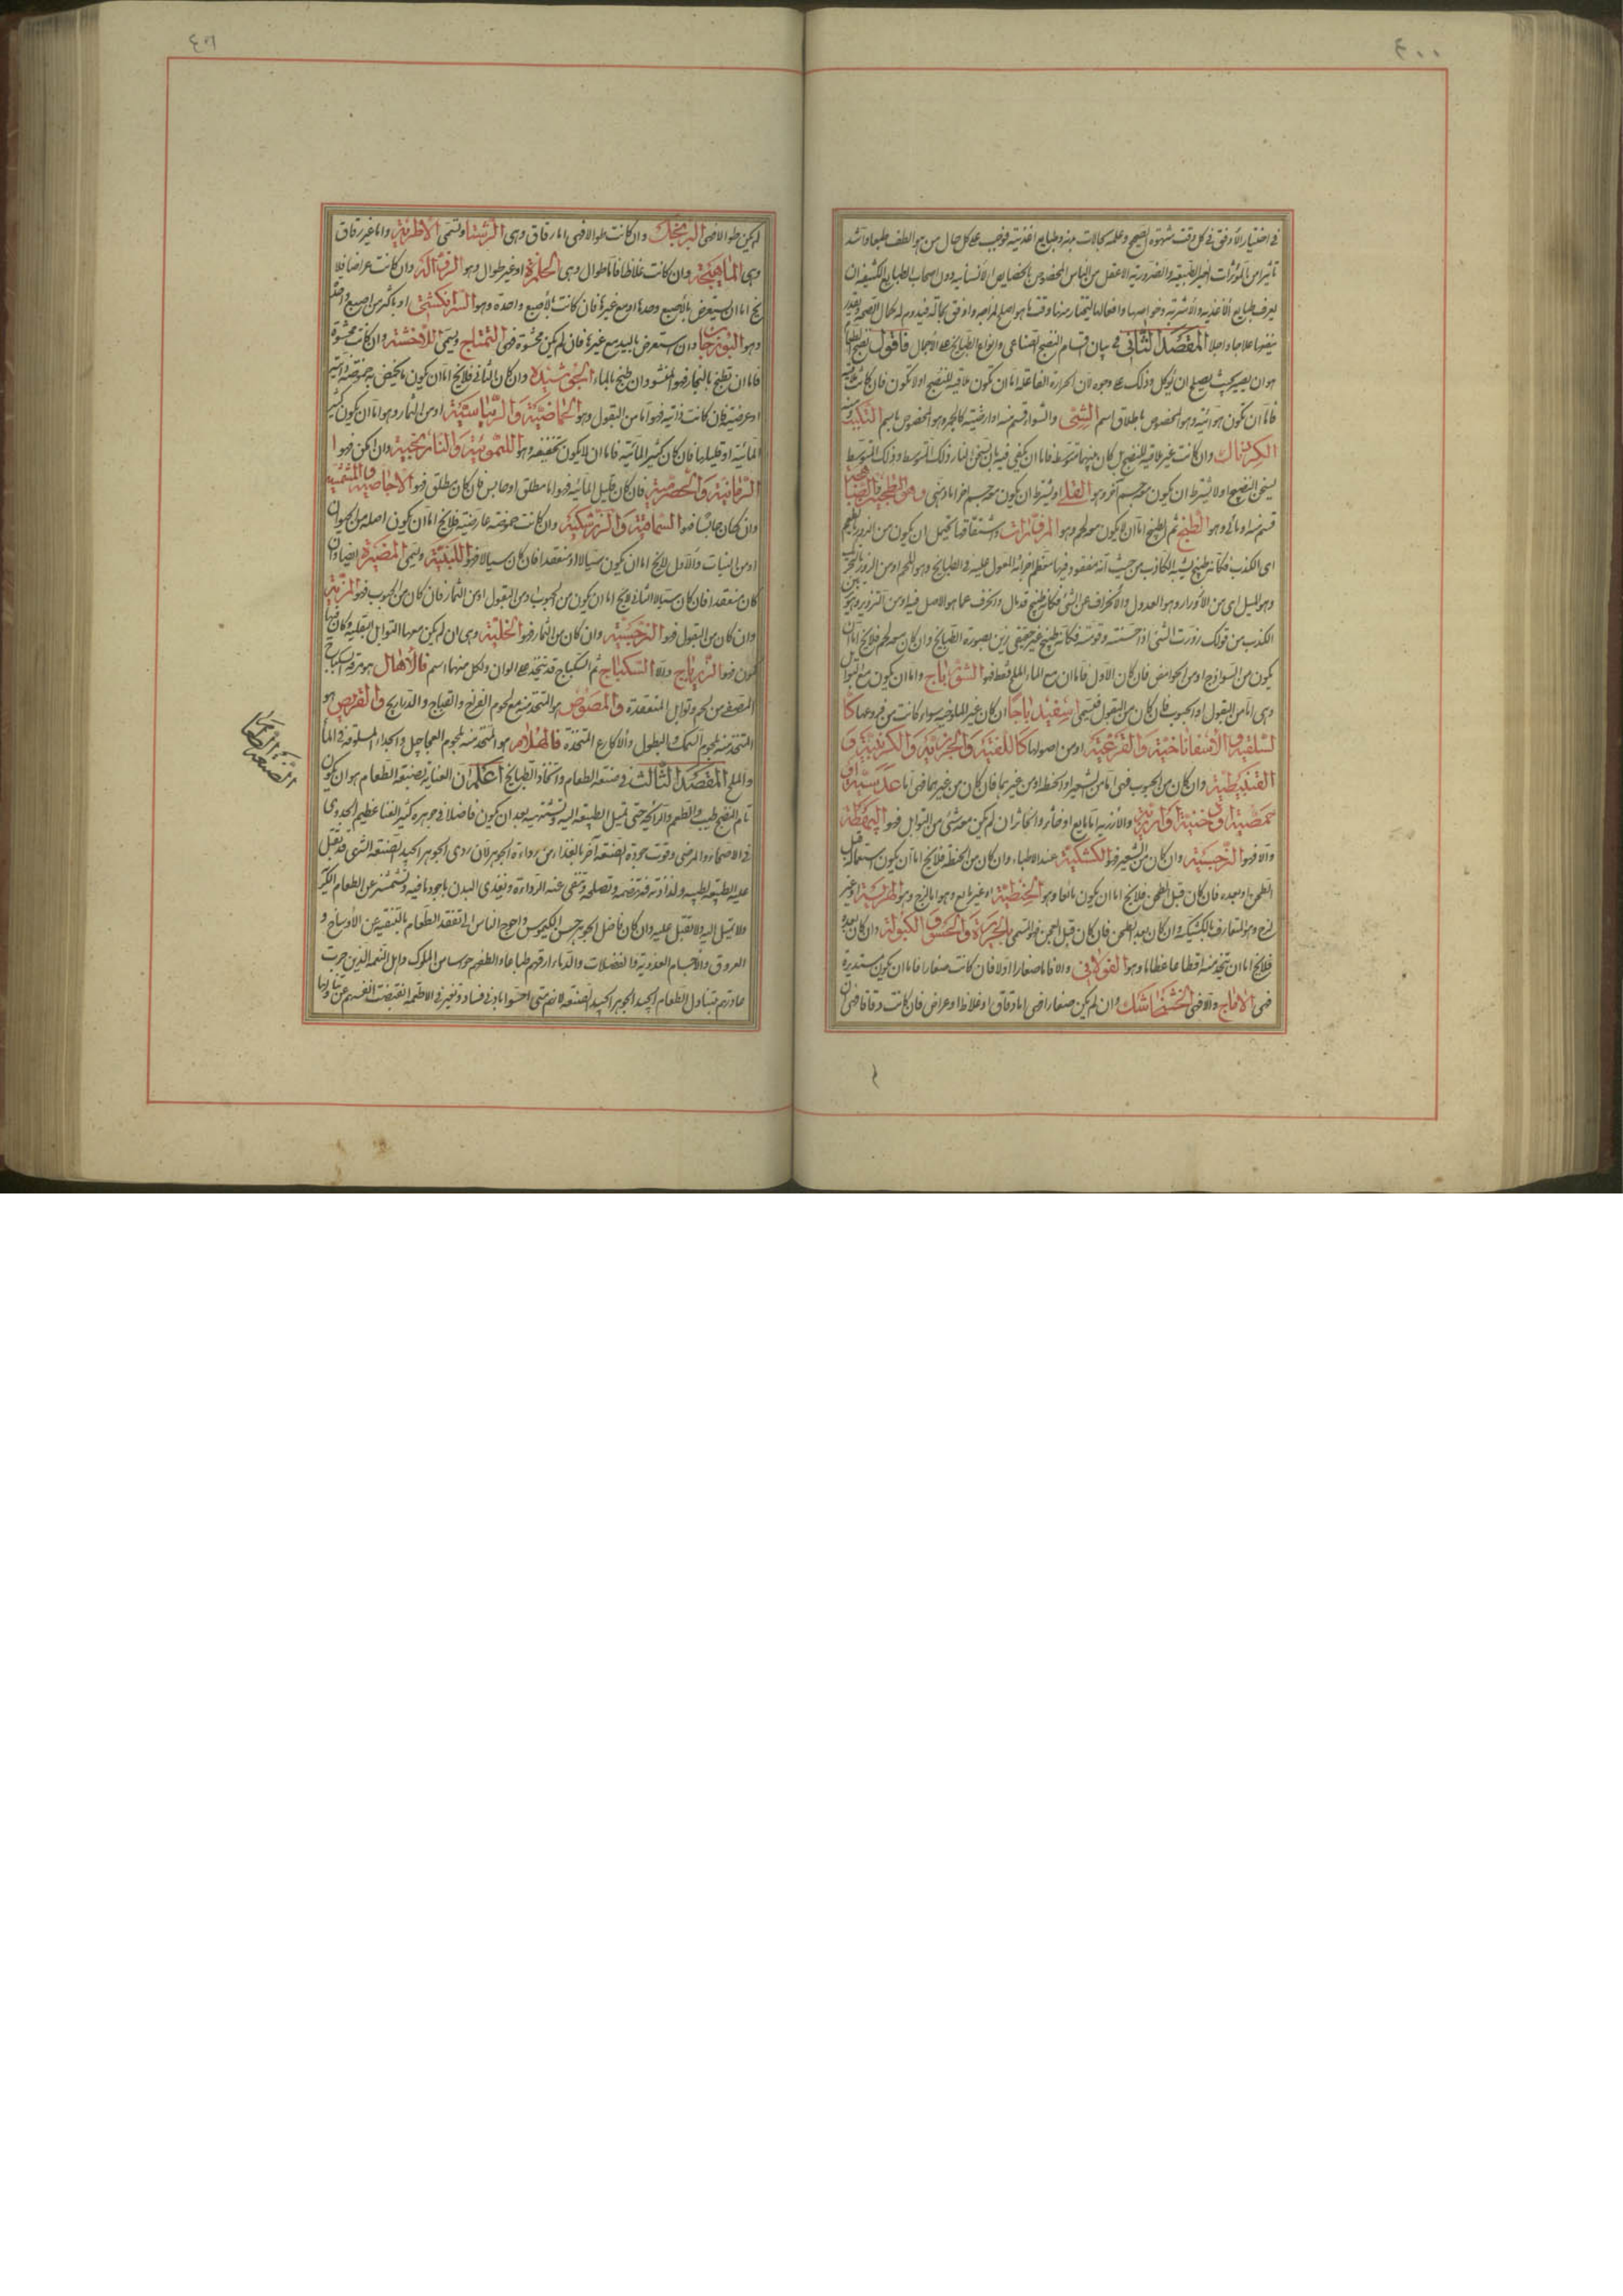 ٤٠٠
في اختيار الأوفق في كل وقت شهوته الصحيح وعلمه بحالات بدنه وطبايع اغذيته فوجب على كل حال من هو الطف طبعا واشد
تاثيرا من المؤثرات الغير الطبيعية والضرورية الاعقل من الناس المخصوص بالخصايص الانسانية دون اصحاب الطبايع الكثيفة ان
يعرف طبايع الأغذية والأشربة وخواصها وافعالها ليختار منها وقتا ما هو اصلح لمزاجه واوفق بحالته فيدوم له كمال الصحة
المقصد الثاني في بيان اقسام النضج الصناعي وانواع الطبايخ على الأجمال فاقول نضج
هو ان يصير بحيث يصلح ان يؤكل وذلك على وجوه لان الحرارة الفاعلة اما ان تكون ملاقية للنضيج او لا تكون فان كانت
فاما ان تكون هوائية وهو المخصوص باطلاق اسم الشيّ والشواء قسم منه او ارضية كالجمر وهو المخصوص باسم التكبيب
الكرناك وان كانت غير ملاقية للنضيج بل كان بينهما متوسط فاما ان يكفي فيه ان يسخن النار ذلك المتوسط وذلك المتوسط
يسخن النضيج اولا يشترط ان يكون معه جسم آخر وهو القلي او يشترط ان يكون معه جسم آخر اما دهني وهي المطجنة
قسم منه او مائي وهو الطبخ ثم الطبيخ اما ان لا يكون معه لحم وهو المزورات واشتقاقها يحتمل ان يكون من الزور
اي الكذب فكانه طبيخ يشبه الكاذب من حيث انه مفقود فيها معظم اجزائه المعول عليه في الطبايخ وهو اللحم او من الزور
وهو الميل اي من الأزورار وهو العدول والأنحراف عن الشئ فكانه طبيخ قد مال وانحرف عما هو الاصل فيه او من التزوير وهو
الكذب من قولك زورت الشئ اذا حسنته وقومته فكانه طبيخ غير حقيقي زين بصورة الطبايخ وان كان معه لحم فلا يخ اما ان
يكون من السواذج او من الحوامض فان كان الأول فاما ان مع الماء الملح فقط فهو الشورباج واما ان يكون مع التوابل
وهي اما من البقول او الحبوب فان كان من البقول فيسمى اسفيدباجا ان كان غير الملوخية سواء كانت من فروعها كا
لسلقية والأسفاناخية والقرعية او من اصولها كاللفتية والجزرية والكرنبية و
القنبيطية وان كان من الحبوب فهي اما من الشعير او الحنطة او من غيرهما فان كان من غيرهما فهي اما عدسية او
حمصية او حنبية او ارزية والأرزية اما مايع او خاثر والخاثر ان لم يكن معه شئ من التوابل فهو البهطة
والا فهو النرجسية وان كان من الشعير فهو الكشكية عند الاطباء وان كان من الحنطة فلا يخ اما ان يكون استعماله قبل
الطحن او بعده فان كان قبل الطحن فلا يخ اما ان يكون مائعا وهو الحنطية او غير مايع وهو اما لزج وهو الهريسة او غير
لزج وهو المتعارف بالكشكية وان كان بعد الطحن فان كان قبل العجن فهو المسمى بالحريرة والحسو والكبولة وان كان بعده
فلا يخ اما ان يتخذ منه اقطاعا عظاما وهو الفولاني والا فاما صغارا اولا فان كانت صغارا فاما ان يكون مستديرة
فهي الاماج والا فهي الخشخاشك وان لم يكن صغارا فهي اما دقاق او غلاظ او عراض فان كانت دقاقا فهي
لم يكن طوالا فهي البرنجك وان كانت طوالا فهي اما رقاق وهي الرشتا وتسمى الأطرية واما غير رقاق
وهي الماهيجة وان كانت غلاظا فاما طوال وهي الحلمزة او غير طوال وهو الزغالة وان كانت عراضا فلا
يخ اما ان يستعرض بالأصبع وحدها او مع غيرها فان كانت بالأصبع واحدة وهو السرانكشتي او باكثر من اصبع واحد
وهو وان استعرض باليد مع غيرها فان لم يكن محشوة فهي التتماج ويسمى اللاخشة وان كانت محشوة
فاما ان تطبخ بالبخار فهو المغشو وان طبخ بالماء الجوشيده وان كان الثاني فلا يخ اما ان يكون ما يحمض به حموضته ذاتية
او عرضية فان كانت ذاتية فهو اما من البقول وهو الحماضية والريباسية او من الثمار وهو اما ان يكون كثير
المائية او قليلها فان كان كثير المائية فاما ان لا يكون تخفيفه وهو الليموئية والنارنجية وان امكن فهو ا
الرمانية والحصرمية فان كان قليل المائية فهو اما مطلق او حابس فان كان مطلق فهو الأجاصية والمشمشية
وان كان حابسا فهو السماقية والزرشكية وان كانت حموضته عارضية فلا يخ اما ان يكون اصله من الحيوان
او من النبات والأول لا يخ اما ان يكون سيالا او منعقدا فان كان سيالا فهو اللبنية وتسمى المضيرة ايضا وان
كان منعقدا فان كان سيالا الثاني لا يخ اما ان يكون من الحبوب او من البقول او من الثمار فان كان من الحبوب فهو المرية
وان كان من البقول فهو النرجسية وان كان من الثمار فهو الخلية وهي ان لم يكن معها التوابل البقلية وكان
فهو الزيرباج والا السكباج ثم السكباج قد يتخذ على الوان ولكل منها اسم فالأهال هو مرقة السكباج
المصفى من لحم وتوابل المنعقدة والمصوص هو المتخذ منه مع لحوم الفراخ والقباج والدراريج والقريص هو
المتخذ منه لحوم السمك والبطول والأكارع المتخذة فالهلام هو المتخذ منه لحوم العجاجيل والجداء المسلوقة في الماء
والملح المقصد الثالث في صنعة الطعام واتخاذ الطبايخ اعلم ان العناية بصنعة الطعام هو ان يكون
تام النضج طيب الطعم والرائحة حتى تميل الطبيعة اليه وتشتهيه بعد ان يكون فاضلا في جوهره كثير الغنا عظيم الجدوى
في الأصحاء والمرضى وقوت جودة الصنعة آخر بالغذاء من رداءة الجوهر لان ردى الجوهر الجيد الصنعة الشهي قد تقبل
عليه الطبيعة لطيبه ولذاذته فتهضمه وتصلحه وتنفي عنه الرداءة ويغذى البدن باجود ما فيه وتشمئز عن الطعام الكريه
ولا تميل اليه ولا تقبل عليه وان كان فاضل الجوهر حسن الكيموس واحوج الناس الى تفقد الطعام بالتنقية عن الأوساخ و
العروق والأجسام الغددية والفضلات والدماء ارقهم طباعا والطفهم حواسا من الملوك واهل النعمة الذين جرت
عادتهم بتناول الطعام الجيد الجوهر الجيد الصنعة لانهم متى احسوا بادنى فساد وتغير في الاطعمة انقبضت انفسهم عن تناولها